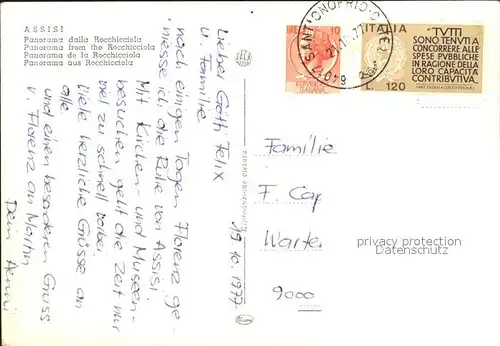 ASSISI
Panorama dalla Rocchicciola
Panorama from the Rocchicciola
Panorama de la Rocchicciola
Panorama aus Rocchicciola
19.10.1977
Lieber Götti Felix
u. Familie
nach einigen Tagen Florenz ge-
niesse ich die Ruhe von Assisi.
Mit Kirchen- und Museen-
besuchen geht die Zeit nur
viel zu schnell vorbei.
Viele herzliche Grüsse an
alle
und einen besonderen Gruss
v. Florenz an Martin
Dein
LIRE 10
ITALIA
TUTTI
SONO TENUTI A
CONCORRERE ALLE
SPESE PUBBLICHE
IN RAGIONE DELLA
LORO CAPACITÀ
CONTRIBUTIVA.
L. 120
SANT'ONOFRIO
Familie
F. Cap
Warte
9000
protection watermark
protection de la propriété